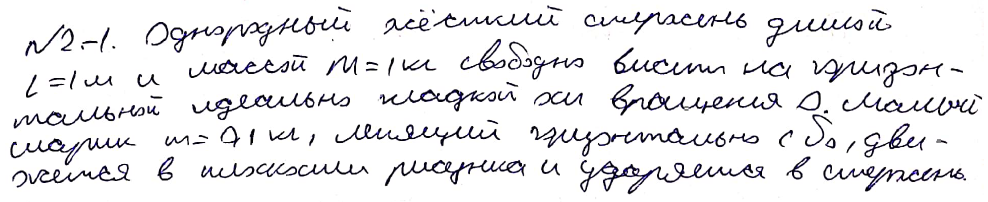 №2-1. Однородный жёсткий стержень длиной
l=1м и массой M=1кг свободно висит на горизон-
тальной идеально гладкой оси вращения O. Малый
шарик m=0,1 кг, летящий горизонтально с v̄₀, дви-
жется в плоскости рисунка и ударяется в стержень.